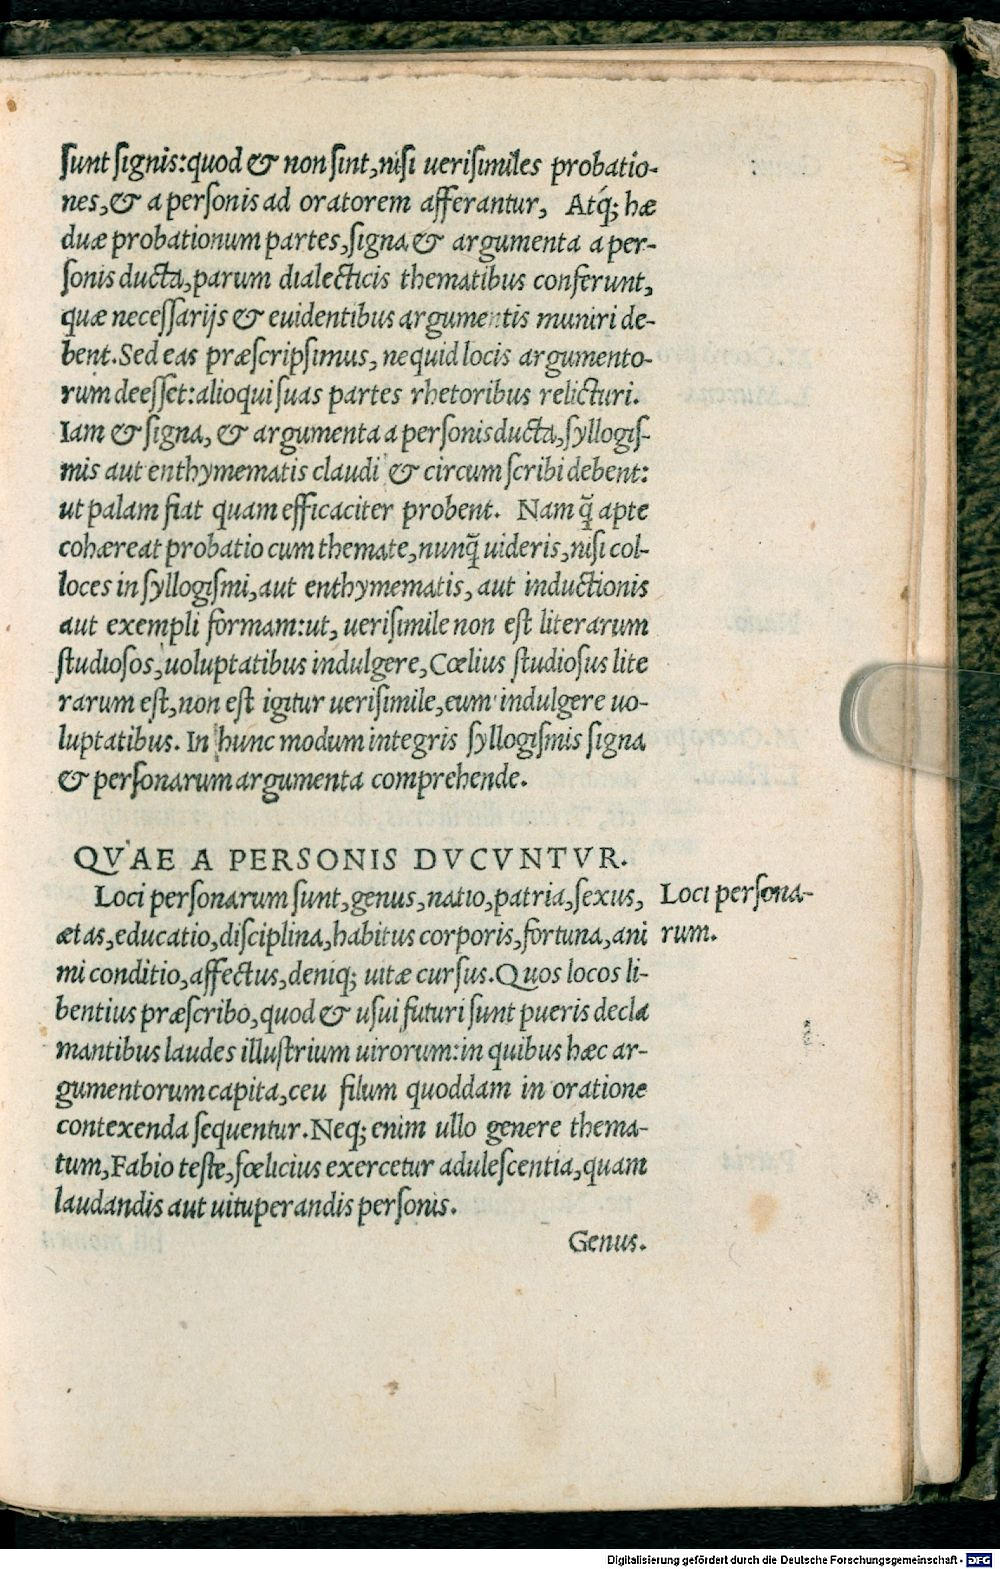 sunt signis:quod & non sint,nisi uerisimiles probatio-
nes,& a personis ad oratorem afferantur, Atq; hæ
duæ probationum partes,signa & argumenta a per-
sonis ducta,parum dialecticis thematibus conferunt,
quæ necessarijs & euidentibus argumentis muniri de-
bent.Sed eas præscripsimus, nequid locis argumento-
rum deesset:alioqui suas partes rhetoribus relicturi.
Iam & signa, & argumenta a personis ducta,syllogis-
mis aut enthymematis claudi & circumscribi debent:
ut palam fiat quam efficaciter probent. Nam q̃ apte
cohæreat probatio cum themate,nunq̃ uideris,nisi col-
loces in syllogismi,aut enthymematis, aut inductionis
aut exempli formam:ut, uerisimile non est literarum
studiosos,uoluptatibus indulgere,Cœlius studiosus lite
rarum est,non est igitur uerisimile,eum indulgere uo-
luptatibus. In hunc modum integris syllogismis signa
& personarum argumenta comprehende.
QVAE A PERSONIS DVCVNTVR.
Loci personarum sunt,genus,natio,patria,sexus,
ætas,educatio,disciplina,habitus corporis,fortuna,ani
mi conditio,affectus,deniq; uitæ cursus.Quos locos li-
bentius præscribo,quod & usui futuri sunt pueris decla
mantibus laudes illustrium uirorum:in quibus hæc ar-
gumentorum capita,ceu filum quoddam in oratione
contexenda sequentur.Neq; enim ullo genere thema-
tum,Fabio teste,fœlicius exercetur adulescentia,quam
laudandis aut uituperandis personis.
Genus.
Loci persona-
rum.
Digitalisierung gefördert durch die Deutsche Forschungsgemeinschaft - DFG